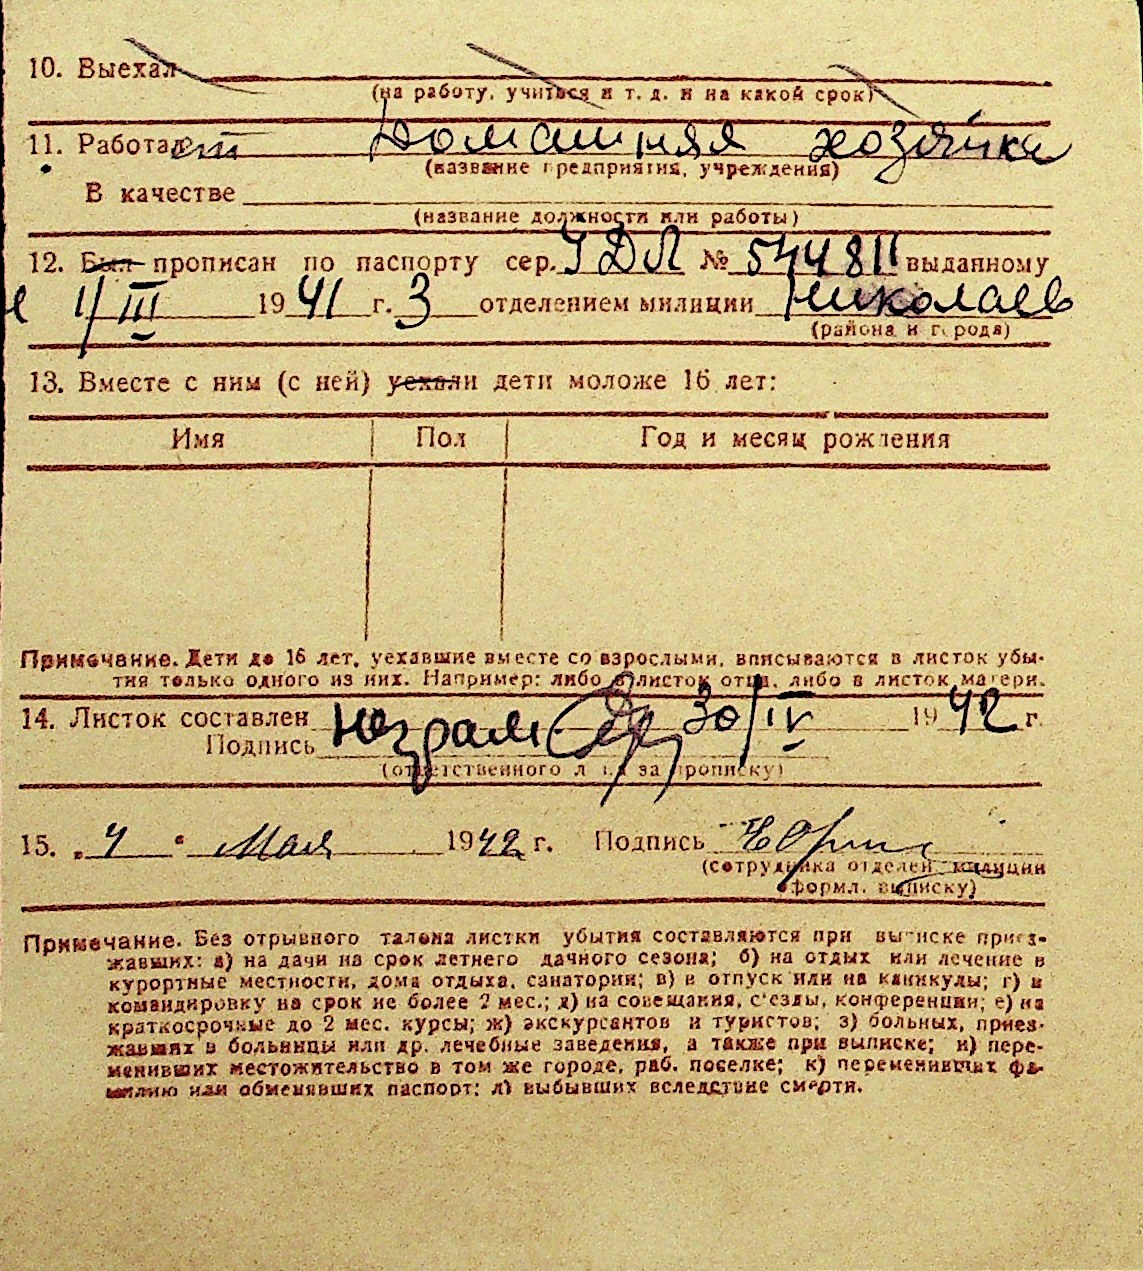 10. Выехал
(на работу, учиться и т. д. и на какой срок)
11. Работает Домашняя хозяйка
(название предприятия, учреждения)
В качестве
(название должности или работы)
12. Был прописан по паспорту сер. УДЛ № 544811 выданному
1/III 1941 г. 3 отделением милиции Николаев
(района и города)
13. Вместе с ним (с ней) уехали дети моложе 16 лет:
Имя Пол Год и месяц рождения
Примечание. Дети до 16 лет, уехавшие вместе со взрослыми, вписываются в листок убы-
тия только одного из них. Например: либо в листок отца, либо в листок матери.
14. Листок составлен 30/IV 1942 г.
Подпись
(ответственного лица за прописку)
15. „4 “ Мая 1942 г. Подпись
(сотрудника отделен. милиции
оформл. выписку)
Примечание. Без отрывного талона листки убытия составляются при выписке приез-
жавших: а) на дачи на срок летнего дачного сезона; б) на отдых или лечение в
курортные местности, дома отдыха, санатории; в) в отпуск или на каникулы; г) в
командировку на срок не более 2 мес.; д) на совещания, с'езды, конференции; е) на
краткосрочные до 2 мес. курсы; ж) экскурсантов и туристов; з) больных, приез-
жавших в больницы или др. лечебные заведения, а также при выписке; и) пере-
менивших местожительство в том же городе, раб. поселке; к) переменивших фа-
милию или обменявших паспорт; л) выбывших вследствие смерти.